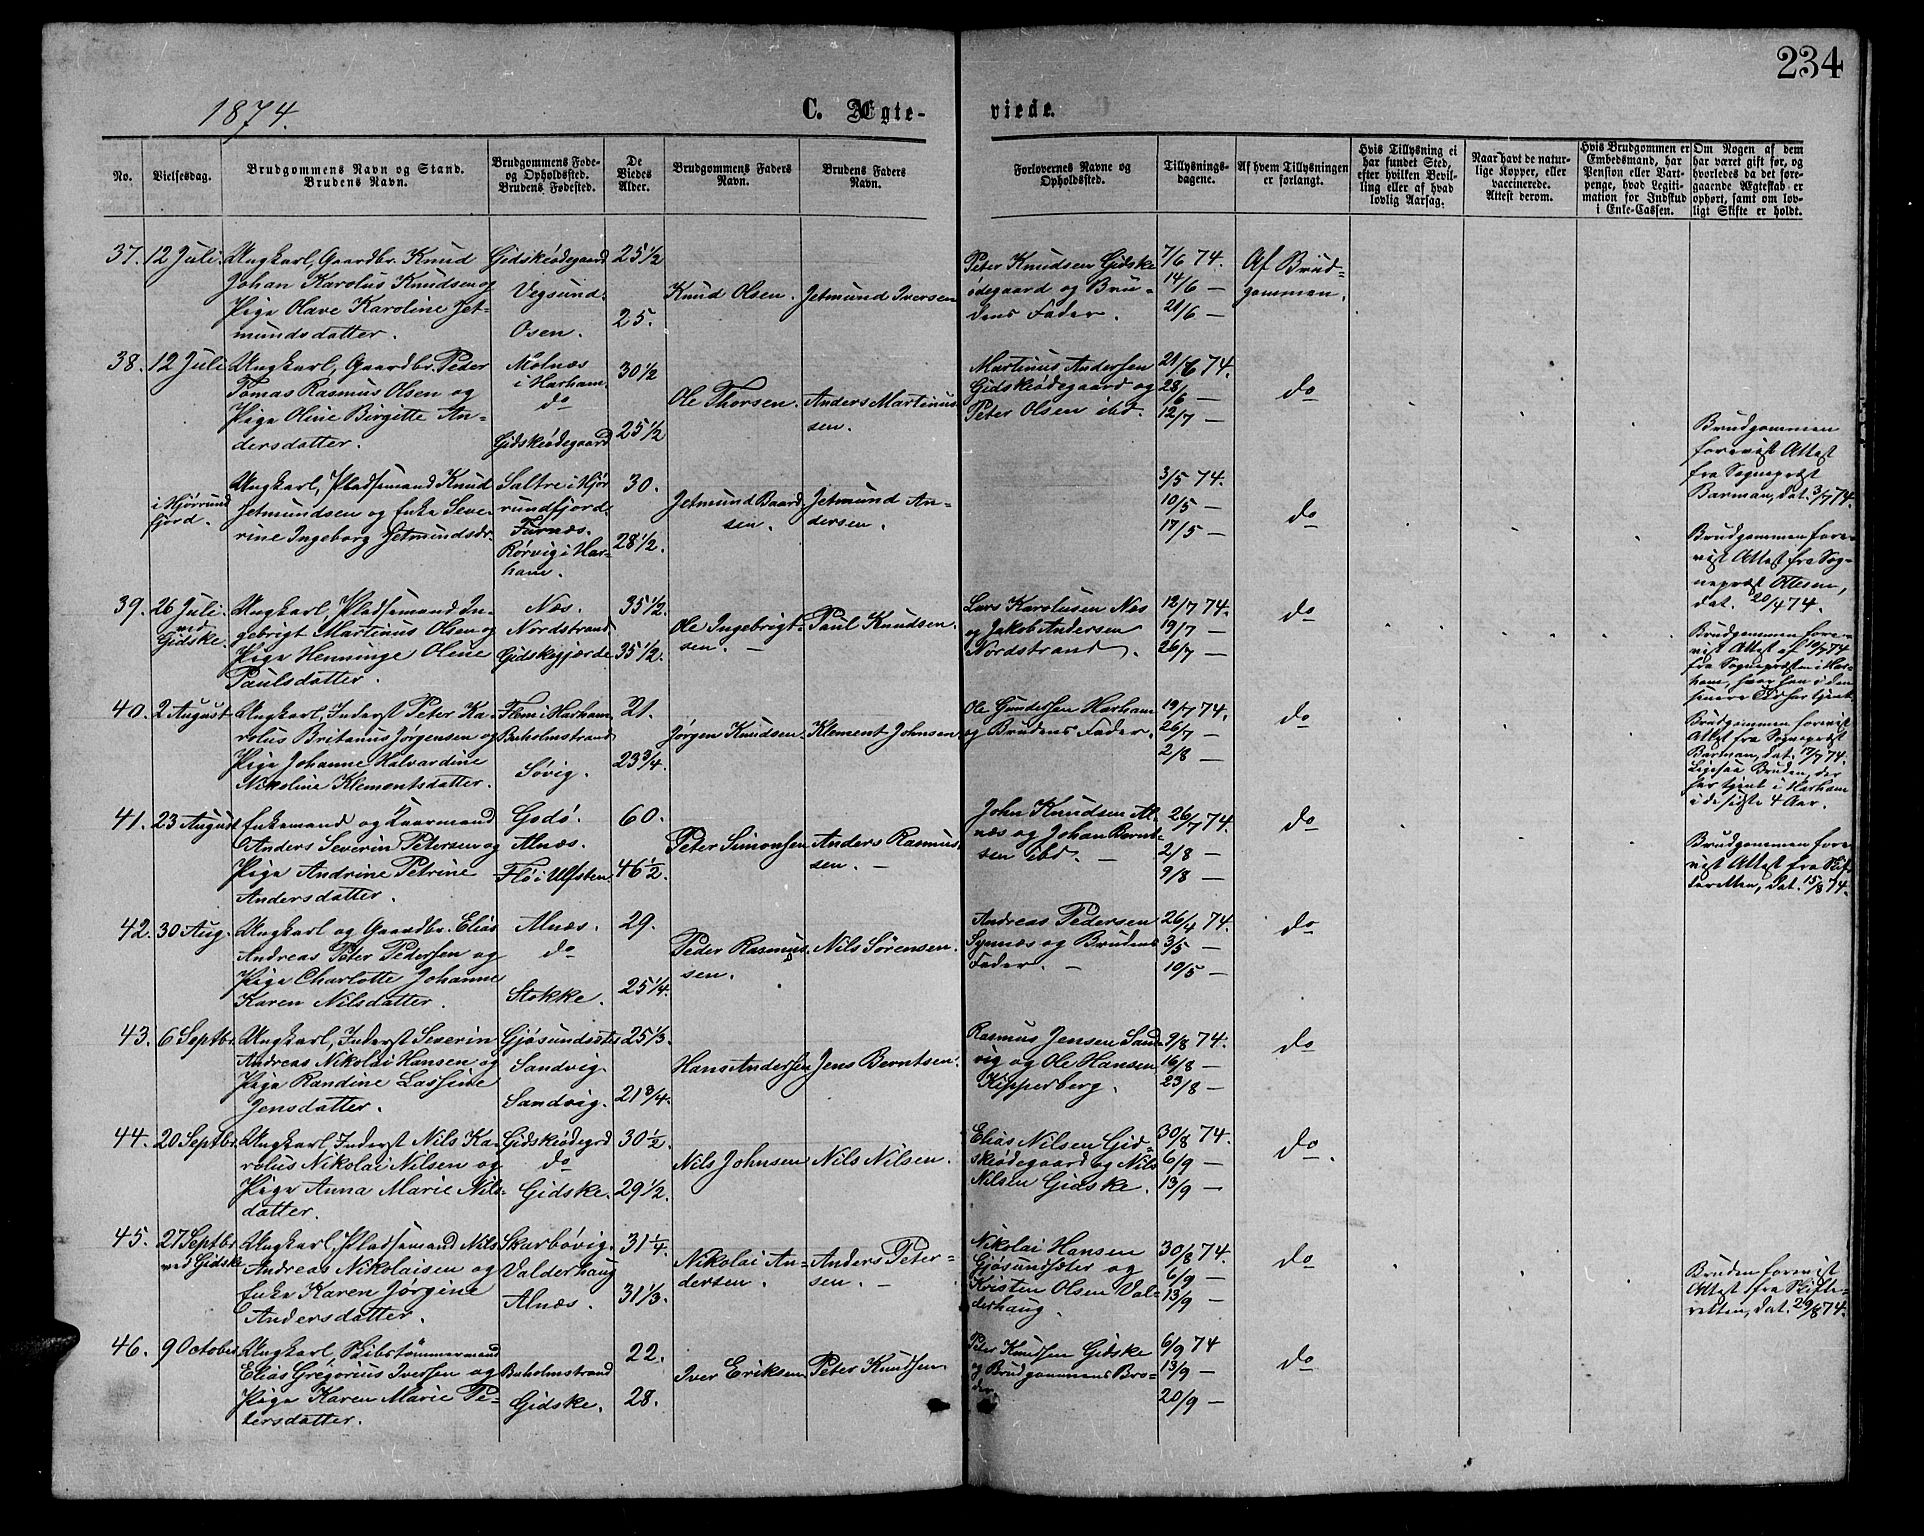 234
1874.
C. Ægte-
viede.
No.
Vielsesdag.
Brudgommens Navn og Stand.
Brudens Navn.
Brudgommens Føde-
og Opholdssted.
Brudens Fødested.
De
Viedes
Alder.
Brudgommens Faders
Navn.
Brudens Faders
Navn.
Forlovernes Navne og
Opholdssted.
Tillysnings-
dagene.
Af hvem Tillysningen
er forlangt.
Hvis Tillysning ei
har fundet Sted,
efter hvilken Bevil-
ling eller af hvad
lovlig Aarsag.
Naar havt de natur-
lige Kopper, eller
vaccinerede.
Attest derom.
Hvis Brudgommen er
Embedsmand, har
Pension eller Vart-
penge, hvad Legiti-
mation for Indskud
i Enke-Cassen.
Om Nogen af dem
har været gift før, og
hvorledes da det fore-
gaaende Ægteskab er
ophørt, samt om lov-
ligt Skifte er holdt.
37.
12 Juli.
Ungkarl, Gaardbr. Knud
Johan Karolus Knudsen og
Pige Olave Karoline Jet-
mundsdatter.
Gidskeødegaard
Vegsund.
Osen.
25 1/2
25.
Knud Olsen.
Jetmund Iversen
Peter Knudsen Gidske
ødegaard og Bru-
dens Fader.
7/6 74.
14/6 —
21/6 —
Af Brud=
gommen.
38.
12 Juli
Ungkarl, Gaardbr. Peder
Tomas Rasmus Olsen og
Pige Oline Birgitte An-
dersdatter.
Molnæs
i Harham.
do
Gidskeødegaard
30 1/2
25 1/2
Ole Thorsen.
Anders Martinus-
sen.
Martinus Andersen
Gidskeødegaard og
Peter Olsen ibd.
21/6 74.
28/6 —
12/7 —
do
Brudgommen
forevist Attest
fra Sognepræst
Barman, dat. 3/7 74.
i Hjørund
fjord.
Ungkarl, Pladsemand Knud
Jetmundsen og Enke Seve-
rine Ingeborg Jetmundsdr.
Saltre i Hjør
rundfjord.
Furnæs.
Rørvig i Har-
ham.
30.
28 1/2.
Jetmund Baard
sen.
Jetmund An-
dersen.
3/5 74.
10/5 —
17/5 —
do
Brudgommen fore-
vist Attest fra Sog-
nepræst Ottesen,
dat. 20/4 74.
39.
26 Juli.
ved
Gidske.
Ungkarl, Pladsemand In-
gebrigt Martinus Olsen og
Pige Henninge Oline
Paulsdatter.
Næs.
Nordstrand
Gidskegjerde
35 1/2.
35 1/2.
Ole Ingebrigt-
sen. —
Paul Knudsen.
Lars Karolusen Næs
og Jakob Andersen
Nordstrand.
12/7 74.
19/7 —
26/7 —
do
Brudgommen fore-
vist Attest af 10/7 74
fra Sognepræsten i Har-
ham, hvor han i den
senere Tid har tjent.
40.
2 August
Ungkarl, Inderst Peter Ka-
rolus Britanus Jørgensen og
Pige Johanne Halvardine
Nikoline Klementsdatter.
Flem i Harham.
Buholmstrand
Søvig.
21.
23 3/4.
Jørgen Knudsen.
Klement Johnsen
Ole Gundersen Harham
og Brudens Fader.
19/7 74.
26/7 —
2/8 —
do
Brudgommen forevist
Attest fra Sognepræst
Barman, dat. 17/7 74.
Ligesaa Bruden, der
har tjent i Harham
i de sidste 4 Aar.
41.
23 August
Enkemand og Kaarmand
Anders Severin Petersen og
Pige Andrine Petrine
Andersdatter.
Godø.
Alnæs.
Flø i Ulfsten.
60.
46 1/2
Peter Simonsen
Anders Rasmus-
sen. —
John Knudsen Al-
næs og Johan Bernt-
sen ibd. —
26/7 74.
2/8 —
9/8 —
do
Brudgommen fore-
vist Attest fra Skif-
teretten, dat. 15/8 74.
42.
30 Aug.
Ungkarl og Gaardbr. Elias
Andreas Peter Pedersen og
Pige Charlotte Johanne
Karen Nilsdatter.
Alnæs.
do
Stokke.
29.
25 1/4.
Peder Rasmus-
sen.
Nils Sørensen.
Andreas Pedersen
Synnæs og Brudens
Fader. —
26/4 74.
3/5 —
10/5 —
do
43.
6 Septbr.
Ungkarl, Inderst Severin
Andreas Nikolai Hansen og
Pige Randine Lassine
Jensdatter.
Gjøsundsæt
Sandvig.
Sandvig.
25 1/3.
21 3/4.
Hans Andersen
Jens Berntsen.
Rasmus Jensen Sand-
vig og Ole Hansen
Kipperberg.
9/8 74.
16/8 —
23/8 —
do
44.
20 Septbr.
Ungkarl, Inderst Nils Ka-
rolus Nikolai Nilsen og
Pige Anna Marie Nils-
datter.
Gidskeødegrd
do
Gidske.
30 1/2.
29 1/2.
Nils Johnsen
Nils Nilsen.
Elias Nilsen Gid-
skeødegaard og Nils
Nilsen Gidske.
30/8 74.
6/9 —
13/9 —
do.
45.
27 Septbr.
ved Gidske
Ungkarl, Pladsemand Nils
Andreas Nikolaisen og
Enke Karen Jørgine
Andersdatter.
Skarbøvig.
Valderhaug
Alnæs.
31 1/4.
31 1/3.
Nikolai An-
dersen.
Anders Peter-
sen. —
Nikolai Hansen
Gjøsundsæter og
Kristen Olsen Val-
derhaug.
30/8 74.
6/9 —
13/9 —
do
Bruden forevist
Attest fra Skifte-
retten, dat. 29/8 74.
46.
9 October
Ungkarl, Skibstømmermand
Elias Gregorius Iversen og
Pige Karen Marie Pe-
tersdatter.
Buholmstrand
Gidske.
22.
28.
Iver Eriksen
Peter Knudsen.
Peter Knudsen Gidske
og Brudgommens Bro-
der.
6/9 74
13/9 —
20/9 —
do